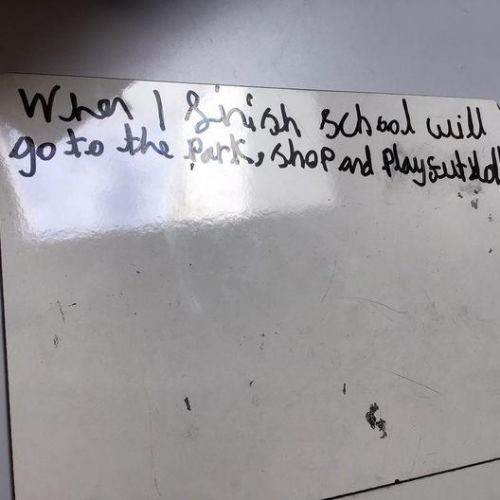 When I finish school will
go to the park, shop and play